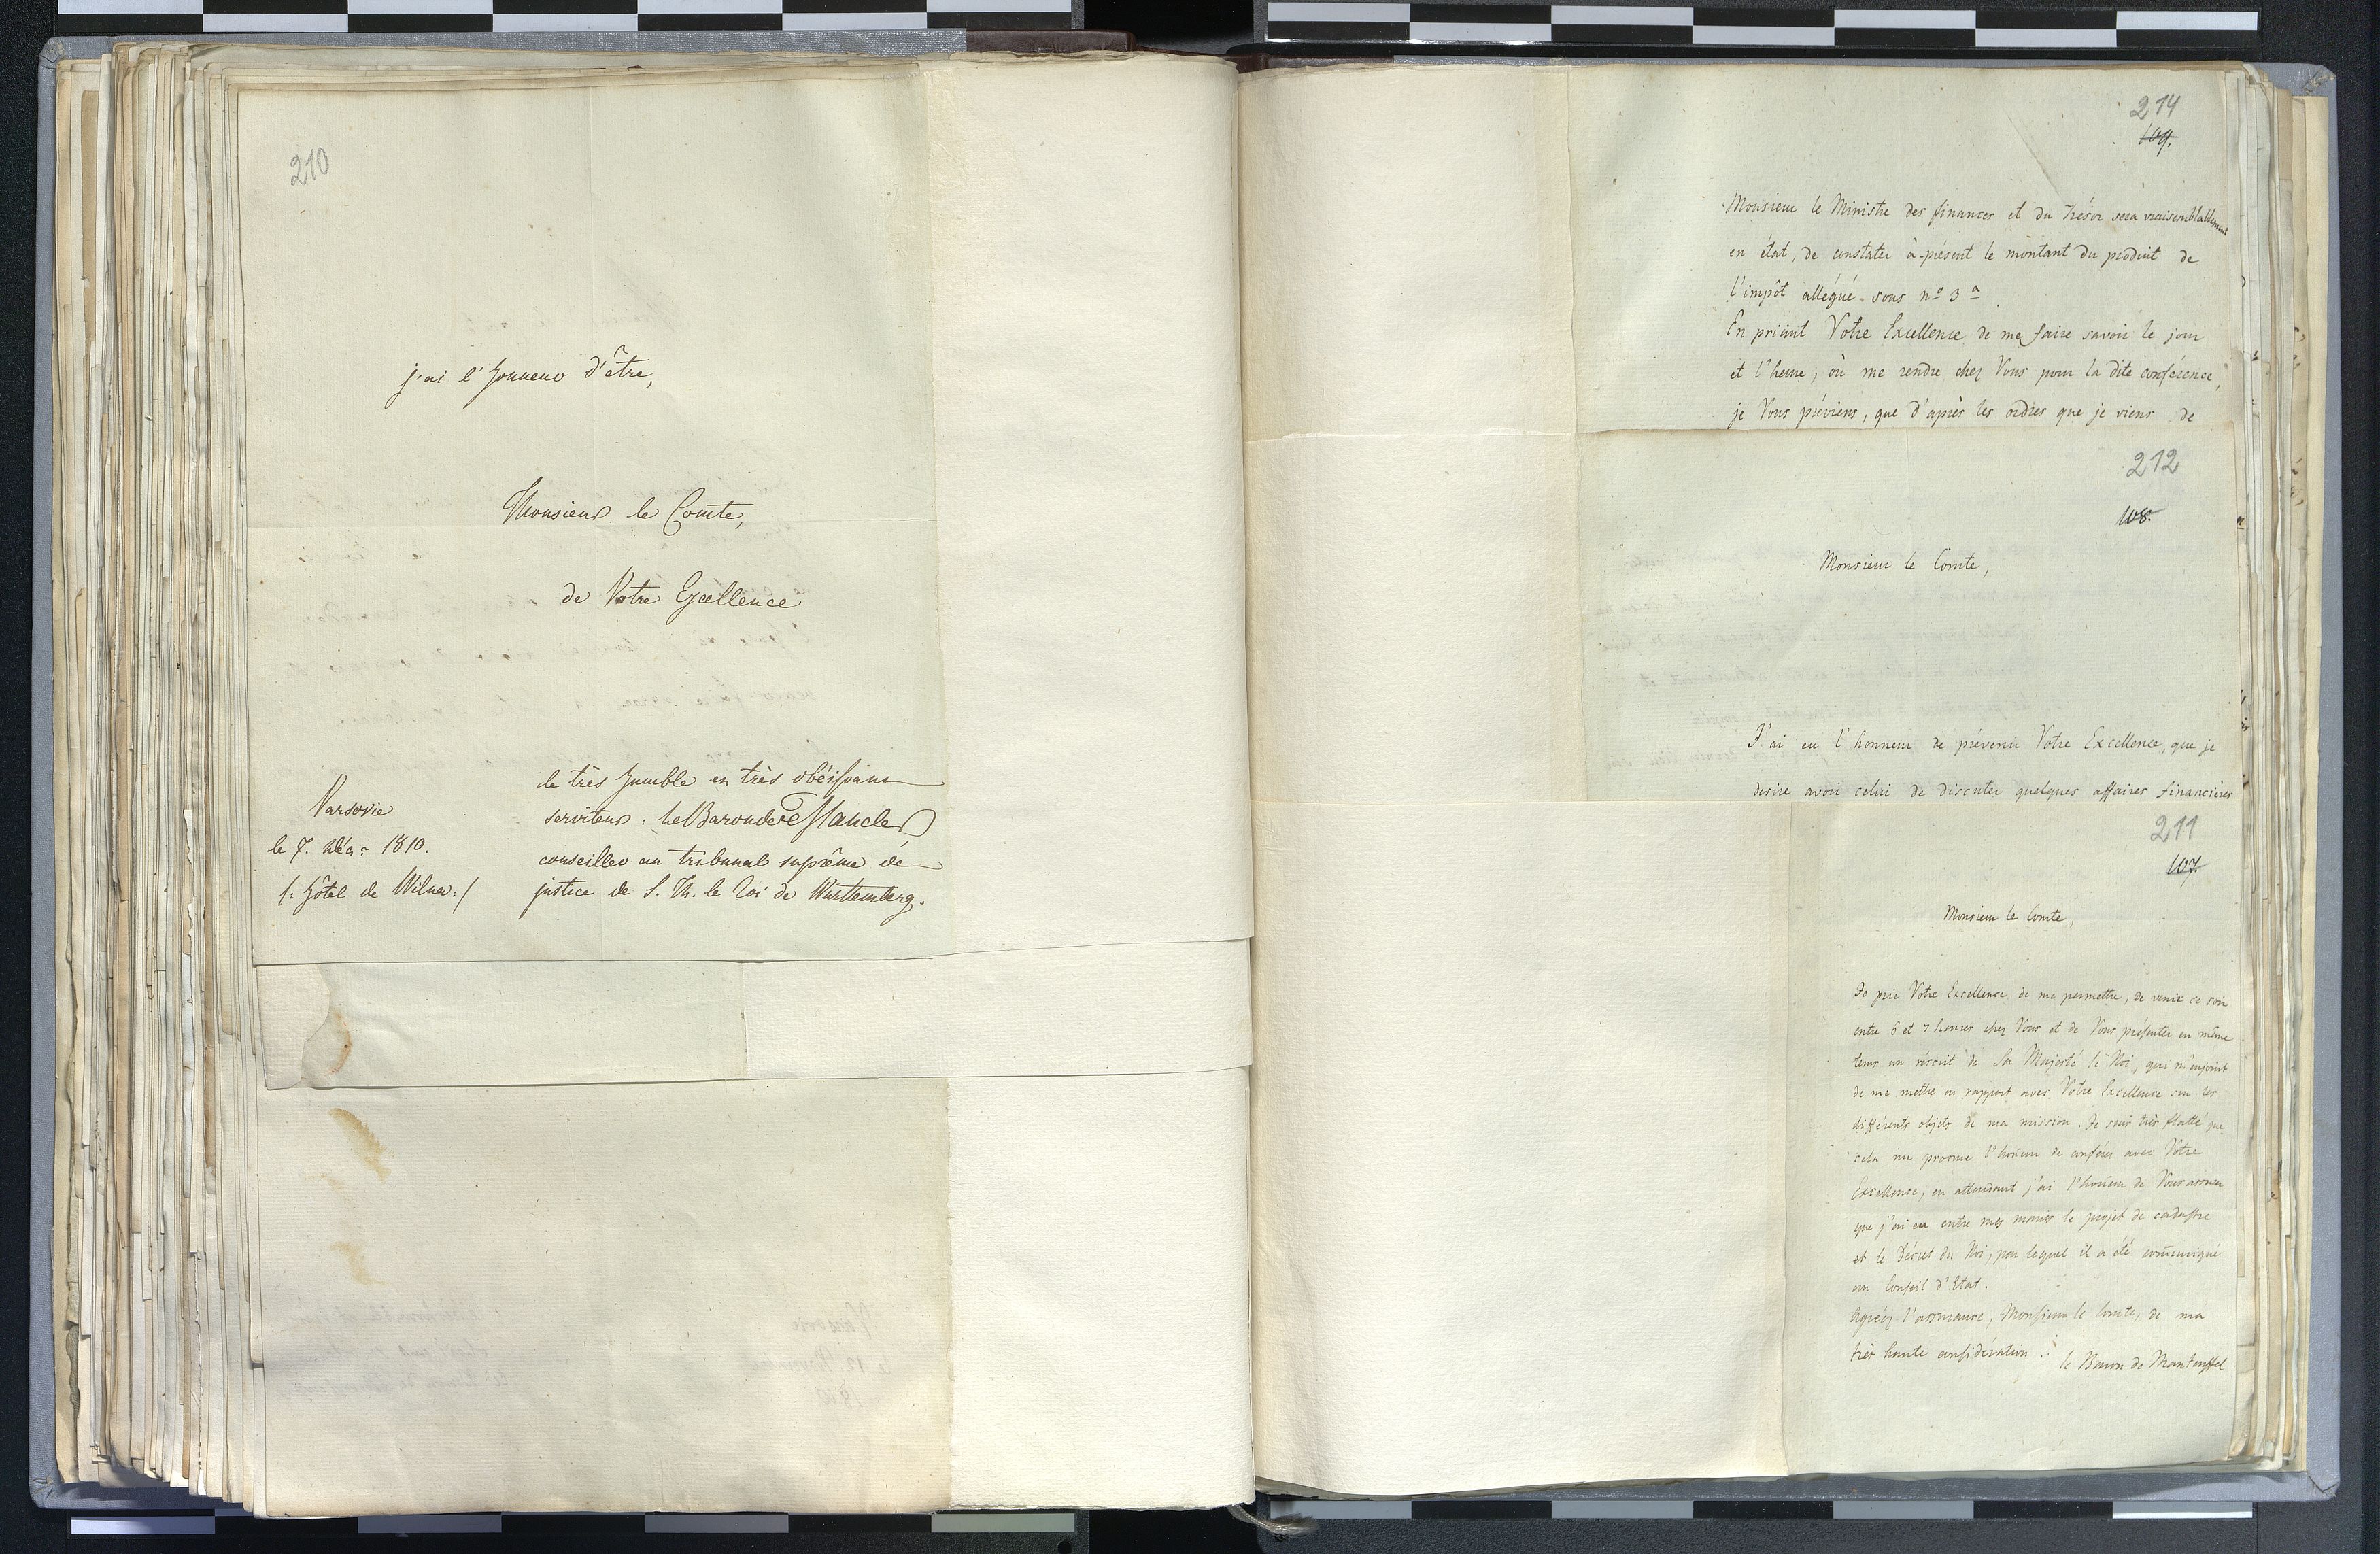 210
j'ai l'honneur d'être,
Monsieur le Comte,
de Votre Excellence
le très humble et très obéissant
serviteur : le Baron de Maucler
conseiller au tribunal suprême de
justice de S. M. le Roi de Wurttemberg.
Varsovie
le 7. Déc: 1810.
/: hôtel de Wilna :/
214
109.
Monsieur le Ministre des finances et du Trésor sera vraisemblablement
en état, de constater à-présent le montant du produit de
l'impôt allégué sous nº 3 a
En priant Votre Excellence de me faire savoir le jour
et l'heure, où me rendre chez Vous pour la dite conférence,
je Vous préviens, que d'après les ordres que je viens de
212
108.
Monsieur le Comte,
J'ai eu l'honneur de prévenir Votre Excellence, que je
desire avoir celui de discuter quelques affaires financières
211
107.
Monsieur le Comte,
Je prie Votre Excellence de me permettre, de venir ce soir
entre 6 et 7 heures chez Vous et de Vous présenter en même
tems un réscrit de Sa Majesté le Roi, qui m'enjoint
de me mettre en rapport avec Votre Excellence sur les
différents objets de ma mission. Je suis très flatté que
cela me procure l'honeur de conférer avec Votre
Excellence, en attendant j'ai l'honeur de Vous assurer
que j'ai eu entre mes mains le projet de cadastre
et le Décret du Roi, par lequel il a été comuniqué
au Conseil d'Etat.
Agréez l'assurance, Monsieur le Comte, de ma
très haute considération.
le Baron de Manteuffel